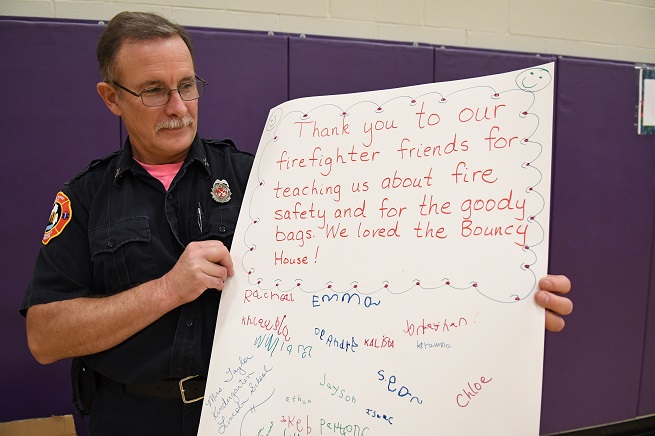 Thank you to our
firefighter friends for
teaching us about fire
safety and for the goody
bags. We loved the Bouncy
House!
Rachael Emma
DeAndre KALISta Jonathan
William
Sean
Mrs. Taylor
Kindergarten
Lincoln School
Jayson Chloe
Ethan Isaac